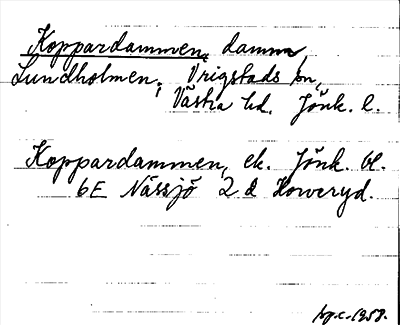 Koppardammen, damm,
Lundholmen, Vrigstads sn,
Västra hd. Jönk. l.
Koppardammen, ek. Jönk. bl.
6E Nässjö 2 d Howeryd.
1958.